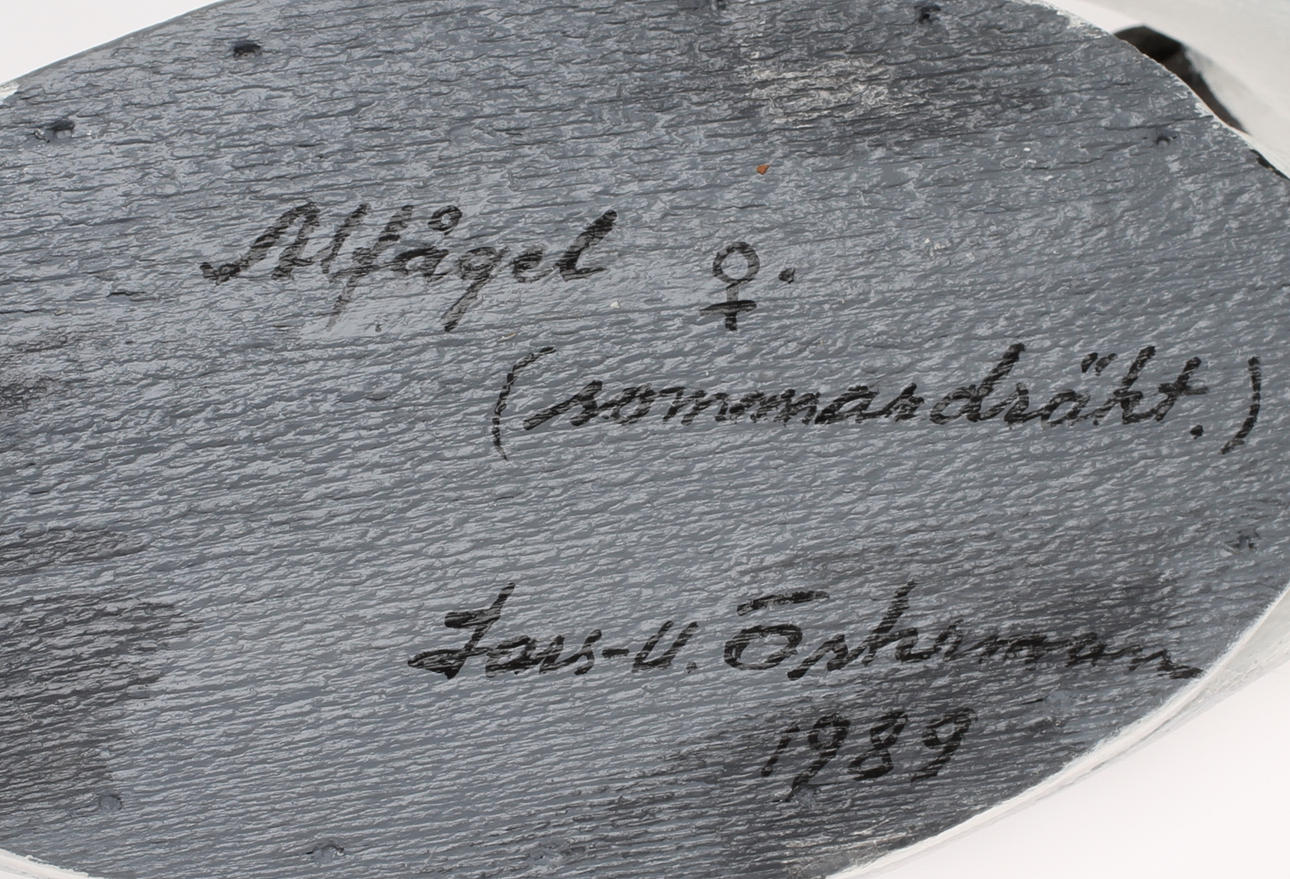 Alfågel ♀.
(sommardräkt.)
Lars-U. Öskerman
1989